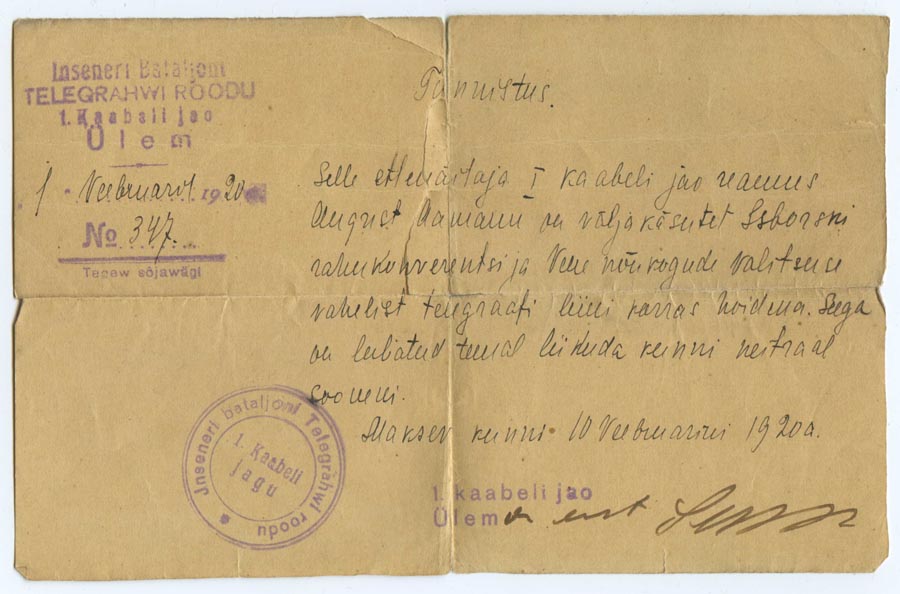 Inseneri Bataljoni
TELEGRAHWI ROODU
1. Kaabeli jao
Ülem
1 Veebruaril 1920
№ 347.
Tegew sõjawägi
Tunnistus.
Selle ettenäitaja I kaabeli jao reamus
August Aamann on väljakäsutet Isborski
rahukonverentsi ja Vene nõukogude valitsuse
vahelist telegraafi liini korras hoidma. Seega
on lubatud temal liikuda kunni neitraal
sooneni.
Maksev kunni 10 Veebruarini 1920a.
Inseneri bataljoni Telegrahwi roodu
1. Kaabeli
jagu
1. kaabeli jao
Ülem